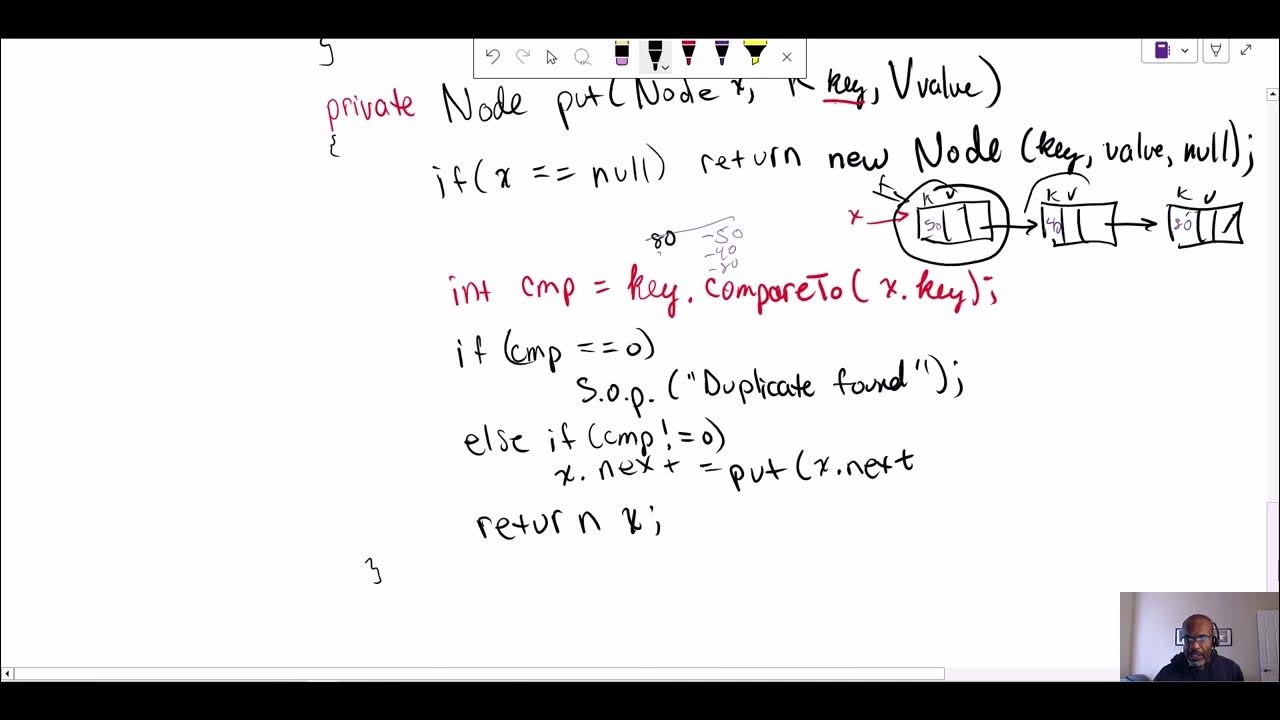 }
private Node put(Node x, K key, V value)
{
if(x == null) return new Node (key, value, null);
f
K V K V K V
x 50 40 80
80 -50
-40
-80
int cmp = key.compareTo( x.key);
if (cmp == 0)
S.o.p. ("Duplicate found");
else if (cmp != 0)
x.next = put(x.next
return x;
}